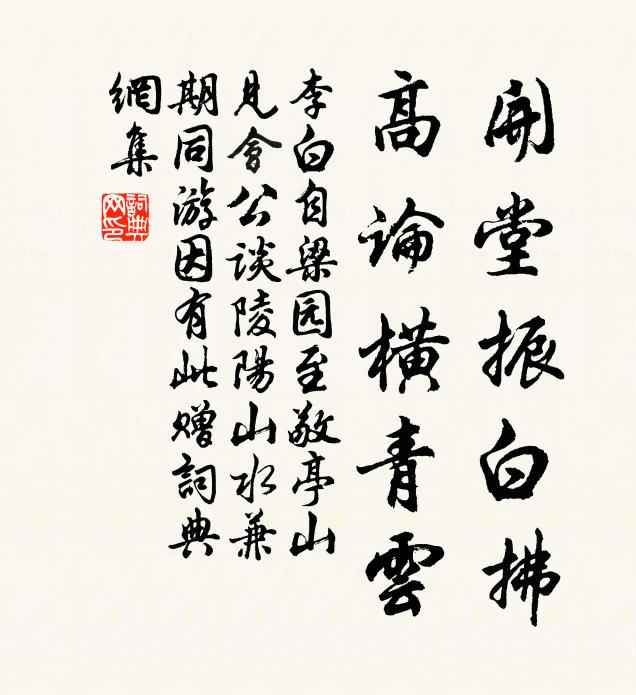 開堂振白拂
高論橫青雲
李白自梁园至敬亭山
見會公谈陵陽山水兼
期同游因有此贈詞典
網集
詞典网印